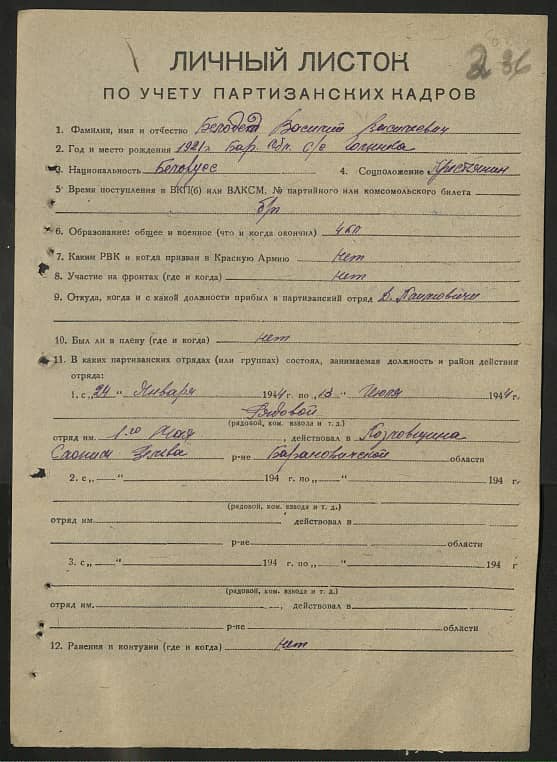 236
ЛИЧНЫЙ ЛИСТОК
ПО УЧЕТУ ПАРТИЗАНСКИХ КАДРОВ
1. Фамилия, имя и отчество Василий Васильевич
2. Год и место рождения 1921 г. Бар. обл. с/с
3. Национальность Белорус 4. Соцположение Крестьянин
5. Время поступления в ВКП(б) или ВЛКСМ, № партийного или комсомольского билета
б/п
6. Образование: общее и военное (что и когда окончил) 4 кл
7. Каким РВК и когда призван в Красную Армию нет
8. Участие на фронтах (где и когда) нет
9. Откуда, когда и с какой должности прибыл в партизанский отряд д.
10. Был ли в плену (где и когда) нет
11. В каких партизанских отрядах (или группах) состоял, занимаемая должность и район действия
отряда:
1. с „24 “ Января 1944 г. по „13 “ Июля 1944 г.
Рядовой
(рядовой, ком. взвода и т. д.)
отряд им. 1го Мая , действовал в Козловщина
Слоним Зельва р-не Барановичской области
2. с „ “ 194 г. по „ “ 194 г.
(рядовой, ком. взвода и т. д.)
отряд им. действовал в
р-не области
3. с „ “ 194 г. по „ “ 194 г
(рядовой, ком. взвода и т. д.)
отряд им. , действовал в
р-не области
12. Ранения и контузии (где и когда) нет